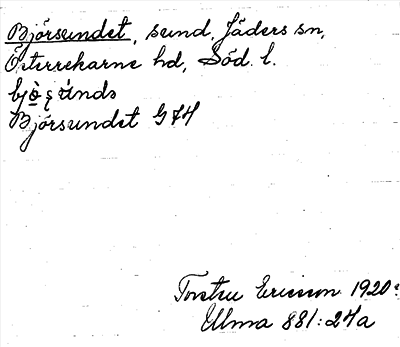 Björsundet, sund, Jäders sn,
Österrekarne hd, Söd. l.
Björsundet G
Torsten Ericsson 1920
Ulma 881:24a